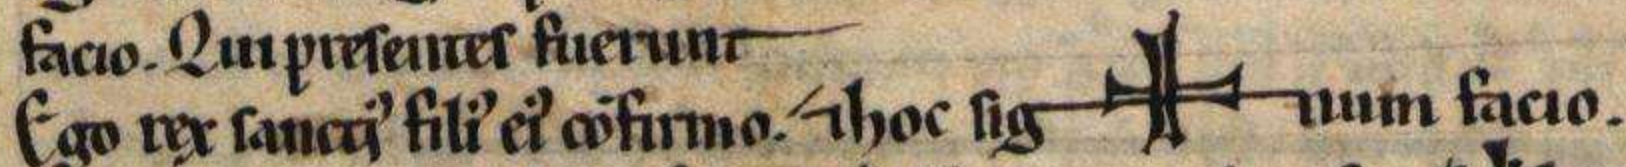 facio. Qui presentes fuerunt
Ego rex sancij filiꝰ eiꝰ cōfirmo. ⁊ hoc sig ✝ num facio.